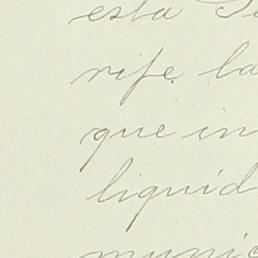 esta
rife la
que in
liquid
munic